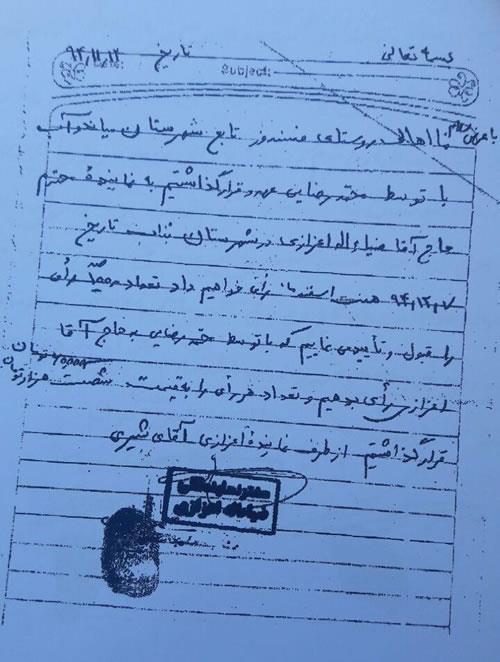 بسمه تعالی تاریخ ۹۴,۱۱,۱۲
Subject:
با عرض سلام
ما اهالی روستای تابع شهرستان میاندوآب
با توسط محمد رضایی عهد و قرار گذاشتیم به نماینده محترم
حاج آقا ضیاءاله اعزازی در شهرستان بناب تاریخ
۹۴,۱۲,۷ هفت اسفند ماه رأی خواهیم داد تعداد رأی
را قبول و تأیید می نماییم که با توسط محمد رضایی به حاج آقا
اعزازی رأی بدهیم و تعداد هر رأی را به قیمت شصت هزار تومان
تومان
قرار گذاشتیم از طرف نماینده اعزازی آقای شیری